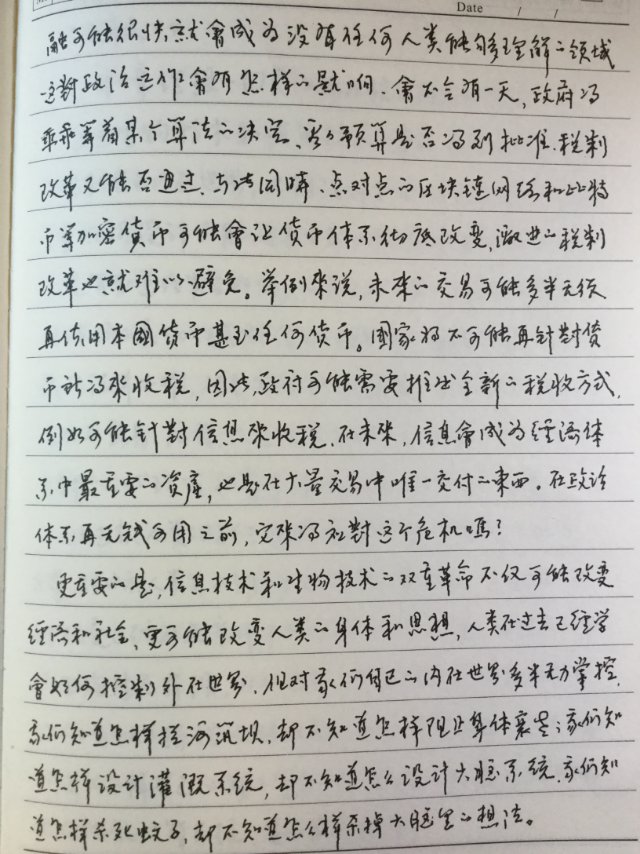 Date / /
融可能很快就會成為没有任何人类能够理解的领域
这對政治运作會有怎样的影响。會不会有一天,政府得
乖乖等着某个算法的决定,看看预算是否得到批准,税制
改革又能否通过。与此同時,点对点的区块鏈网络和比特
币等加密货币可能會让货币体系彻底改变,激进的税制
改革也就难以避免。举例來说,未來的交易可能多半无须
再使用本國货币甚至任何货币。國家将不可能再针對货
币所得來收税,因此,政府可能需要推出全新的税收方式,
例如可能针對信息來收税。在未來,信息會成为经济体
系中最重要的资產,也是在大量交易中唯一交付的東西。在政治
体系再无钱可用之前,它來得和對这个危机嗎?
更重要的是,信息技术和生物技术的双重革命不仅可能改变
经济和社会,更可能改变人类的身体和思想,人类在过去已经学
會如何控制外在世界,但对我们自己的内在世界多半无力掌控。
我们知道怎样拦河筑坝,却不知道怎样阻止身体衰老;我们知
道怎样设计灌溉系统,却不知道怎么设计大脑系统,我们知
道怎样杀死蚊子,却不知道怎么样杀掉大脑里的想法。